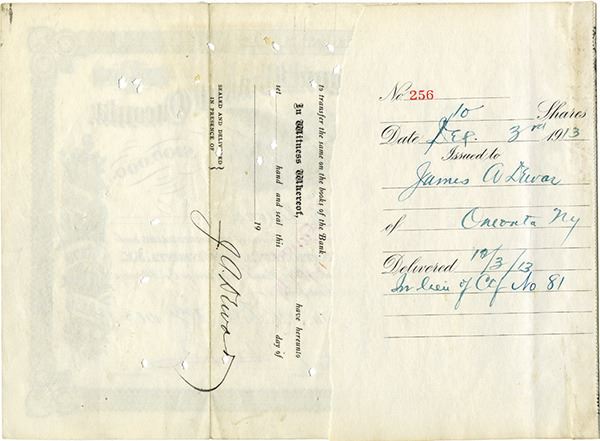 No. 256
10 Shares
Date Sep. 3rd 1913
Issued to
James A Dewar
of Oneonta Ny
Delivered 10/3/13
In lieu of Ctf No 81
to transfer the same on the books of the Bank.
In Witness Whereof, have hereunto
set hand and seal this day of
19
SEALED AND DELIVERED
IN PRESENCE OF
J. A. Dewar